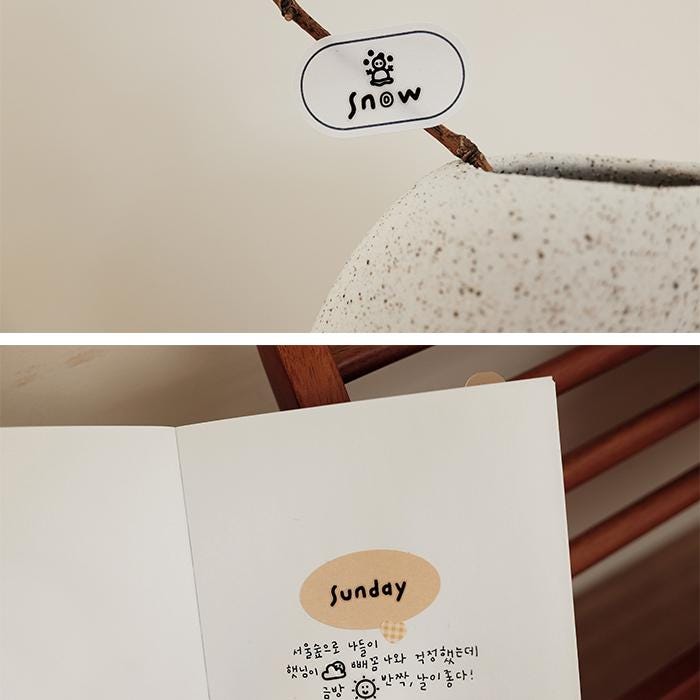 Snow
Sunday
서울숲으로 나들이
햇님이 빼꼼 나와 걱정했는데
금방 반짝, 날이 좋다!